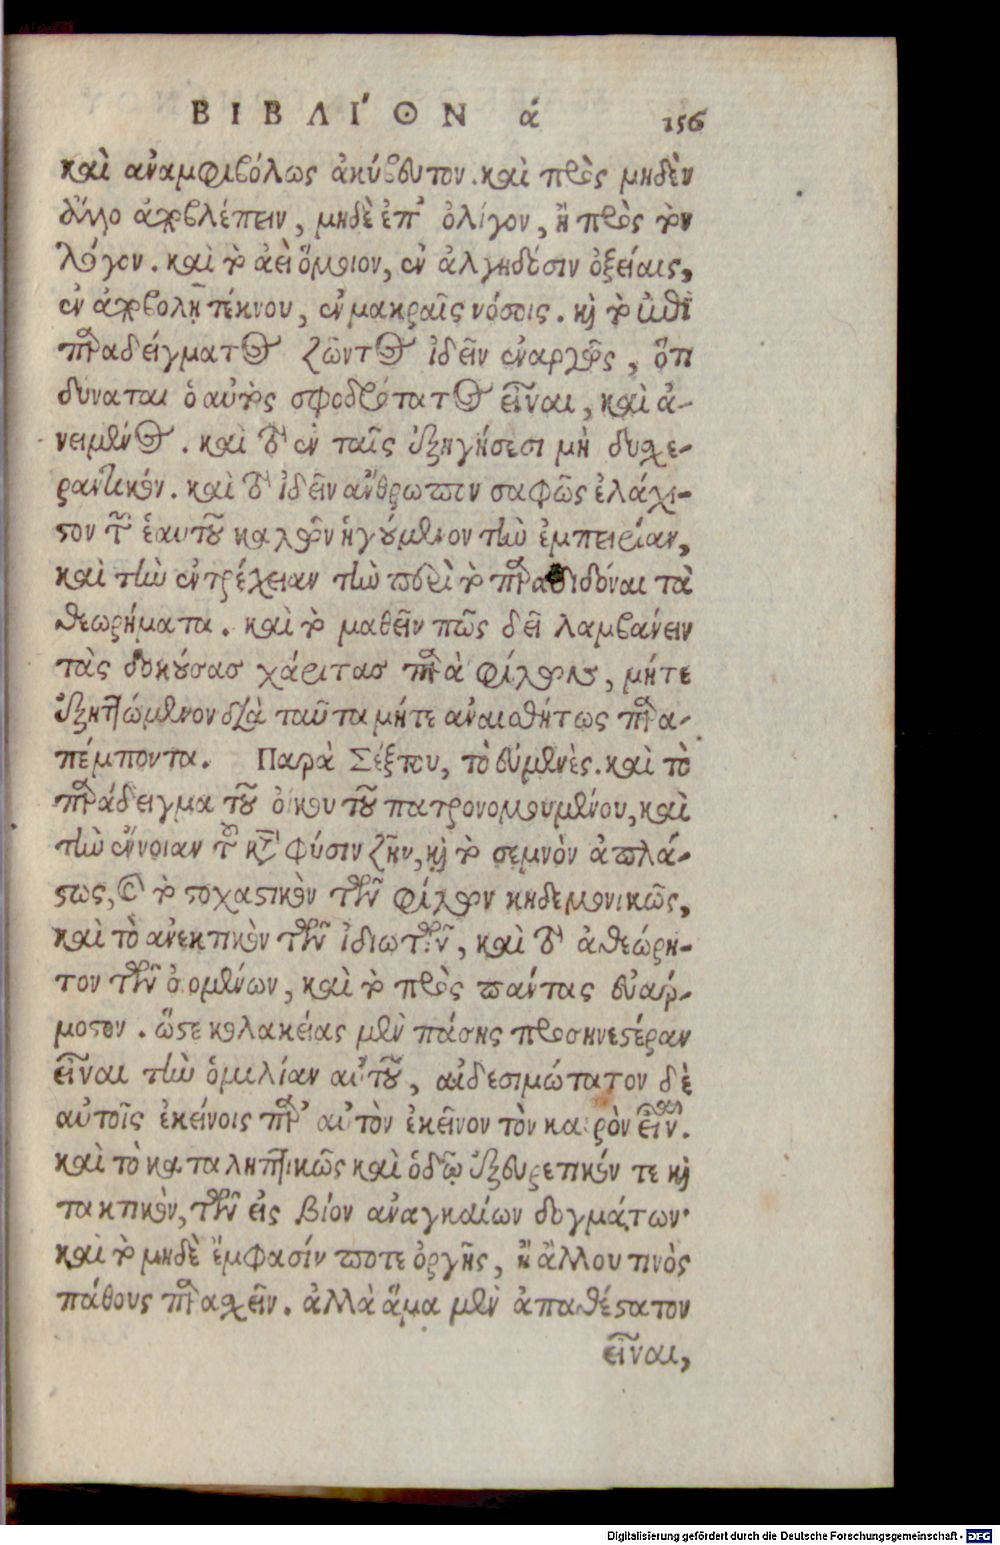 ΒΙΒΛΙ´ΟΝ ά 156
καὶ ἀναμφιβόλως ἀκύβευτον. καὶ πρὸς μηδὲν
ἄλλο ἀποβλέπειν, μηδὲ ἐπ' ὀλίγον, ἢ πρὸς τὸν
λόγον. καὶ τὸ ἀεὶ ὅμοιον, ἐν ἀλγηδόσιν ὀξείαις,
ἐν ἀποβολῇ τέκνου, ἐν μακραῖς νόσοις. καὶ τὸ ἐπὶ
παραδείγματος ζῶντος ἰδεῖν ἐναργῶς, ὅτι
δύναται ὁ αὐτὸς σφοδρότατος εἶναι, καὶ ἀ-
νειμένος. καὶ τὸ ἐν ταῖς ἐξηγήσεσι μὴ δυσχε-
ραντικόν. καὶ τὸ ἰδεῖν ἄνθρωπον σαφῶς ἐλάχι-
στον τῶν ἑαυτοῦ καλῶν ἡγούμενον τὴν ἐμπειρίαν,
καὶ τὴν ἐντρέχειαν τὴν περὶ τὸ παραδιδόναι τὰ
θεωρήματα. καὶ τὸ μαθεῖν πῶς δεῖ λαμβάνειν
τὰς δοκούσας χάριτας παρὰ φίλων, μήτε
ἐξηττώμενον διὰ ταῦτα μήτε ἀναισθήτως παρα-
πέμποντα. Παρὰ Σέξτου, τὸ εὐμενές. καὶ τὸ
παράδειγμα τοῦ οἴκου τοῦ πατρονομουμένου, καὶ
τὴν ἔννοιαν τοῦ κατὰ φύσιν ζῆν, καὶ τὸ σεμνὸν ἀπλά-
στως, καὶ τὸ στοχαστικὸν τῶν φίλων κηδεμονικῶς,
καὶ τὸ ἀνεκτικὸν τῶν ἰδιωτῶν, καὶ τὸ ἀθεώρη-
τον τῶν οἰομένων, καὶ τὸ πρὸς πάντας εὐάρ-
μοστον. ὥστε κολακείας μὲν πάσης προσηνεστέραν
εἶναι τὴν ὁμιλίαν αὐτοῦ, αἰδεσιμώτατον δὲ
αὐτοῖς ἐκείνοις παρ' αὐτὸν ἐκεῖνον τὸν καιρὸν εἶναι.
καὶ τὸ καταληπτικῶς καὶ ὁδῷ ἐξευρετικόν τε καὶ
τακτικὸν, τῶν εἰς βίον ἀναγκαίων δογμάτων·
καὶ τὸ μηδὲ ἔμφασίν ποτε ὀργῆς, ἢ ἄλλου τινὸς
πάθους παρασχεῖν. ἀλλὰ ἅμα μὲν ἀπαθέστατον
εἶναι,
Digitalisierung gefördert durch die Deutsche Forschungsgemeinschaft - DFG